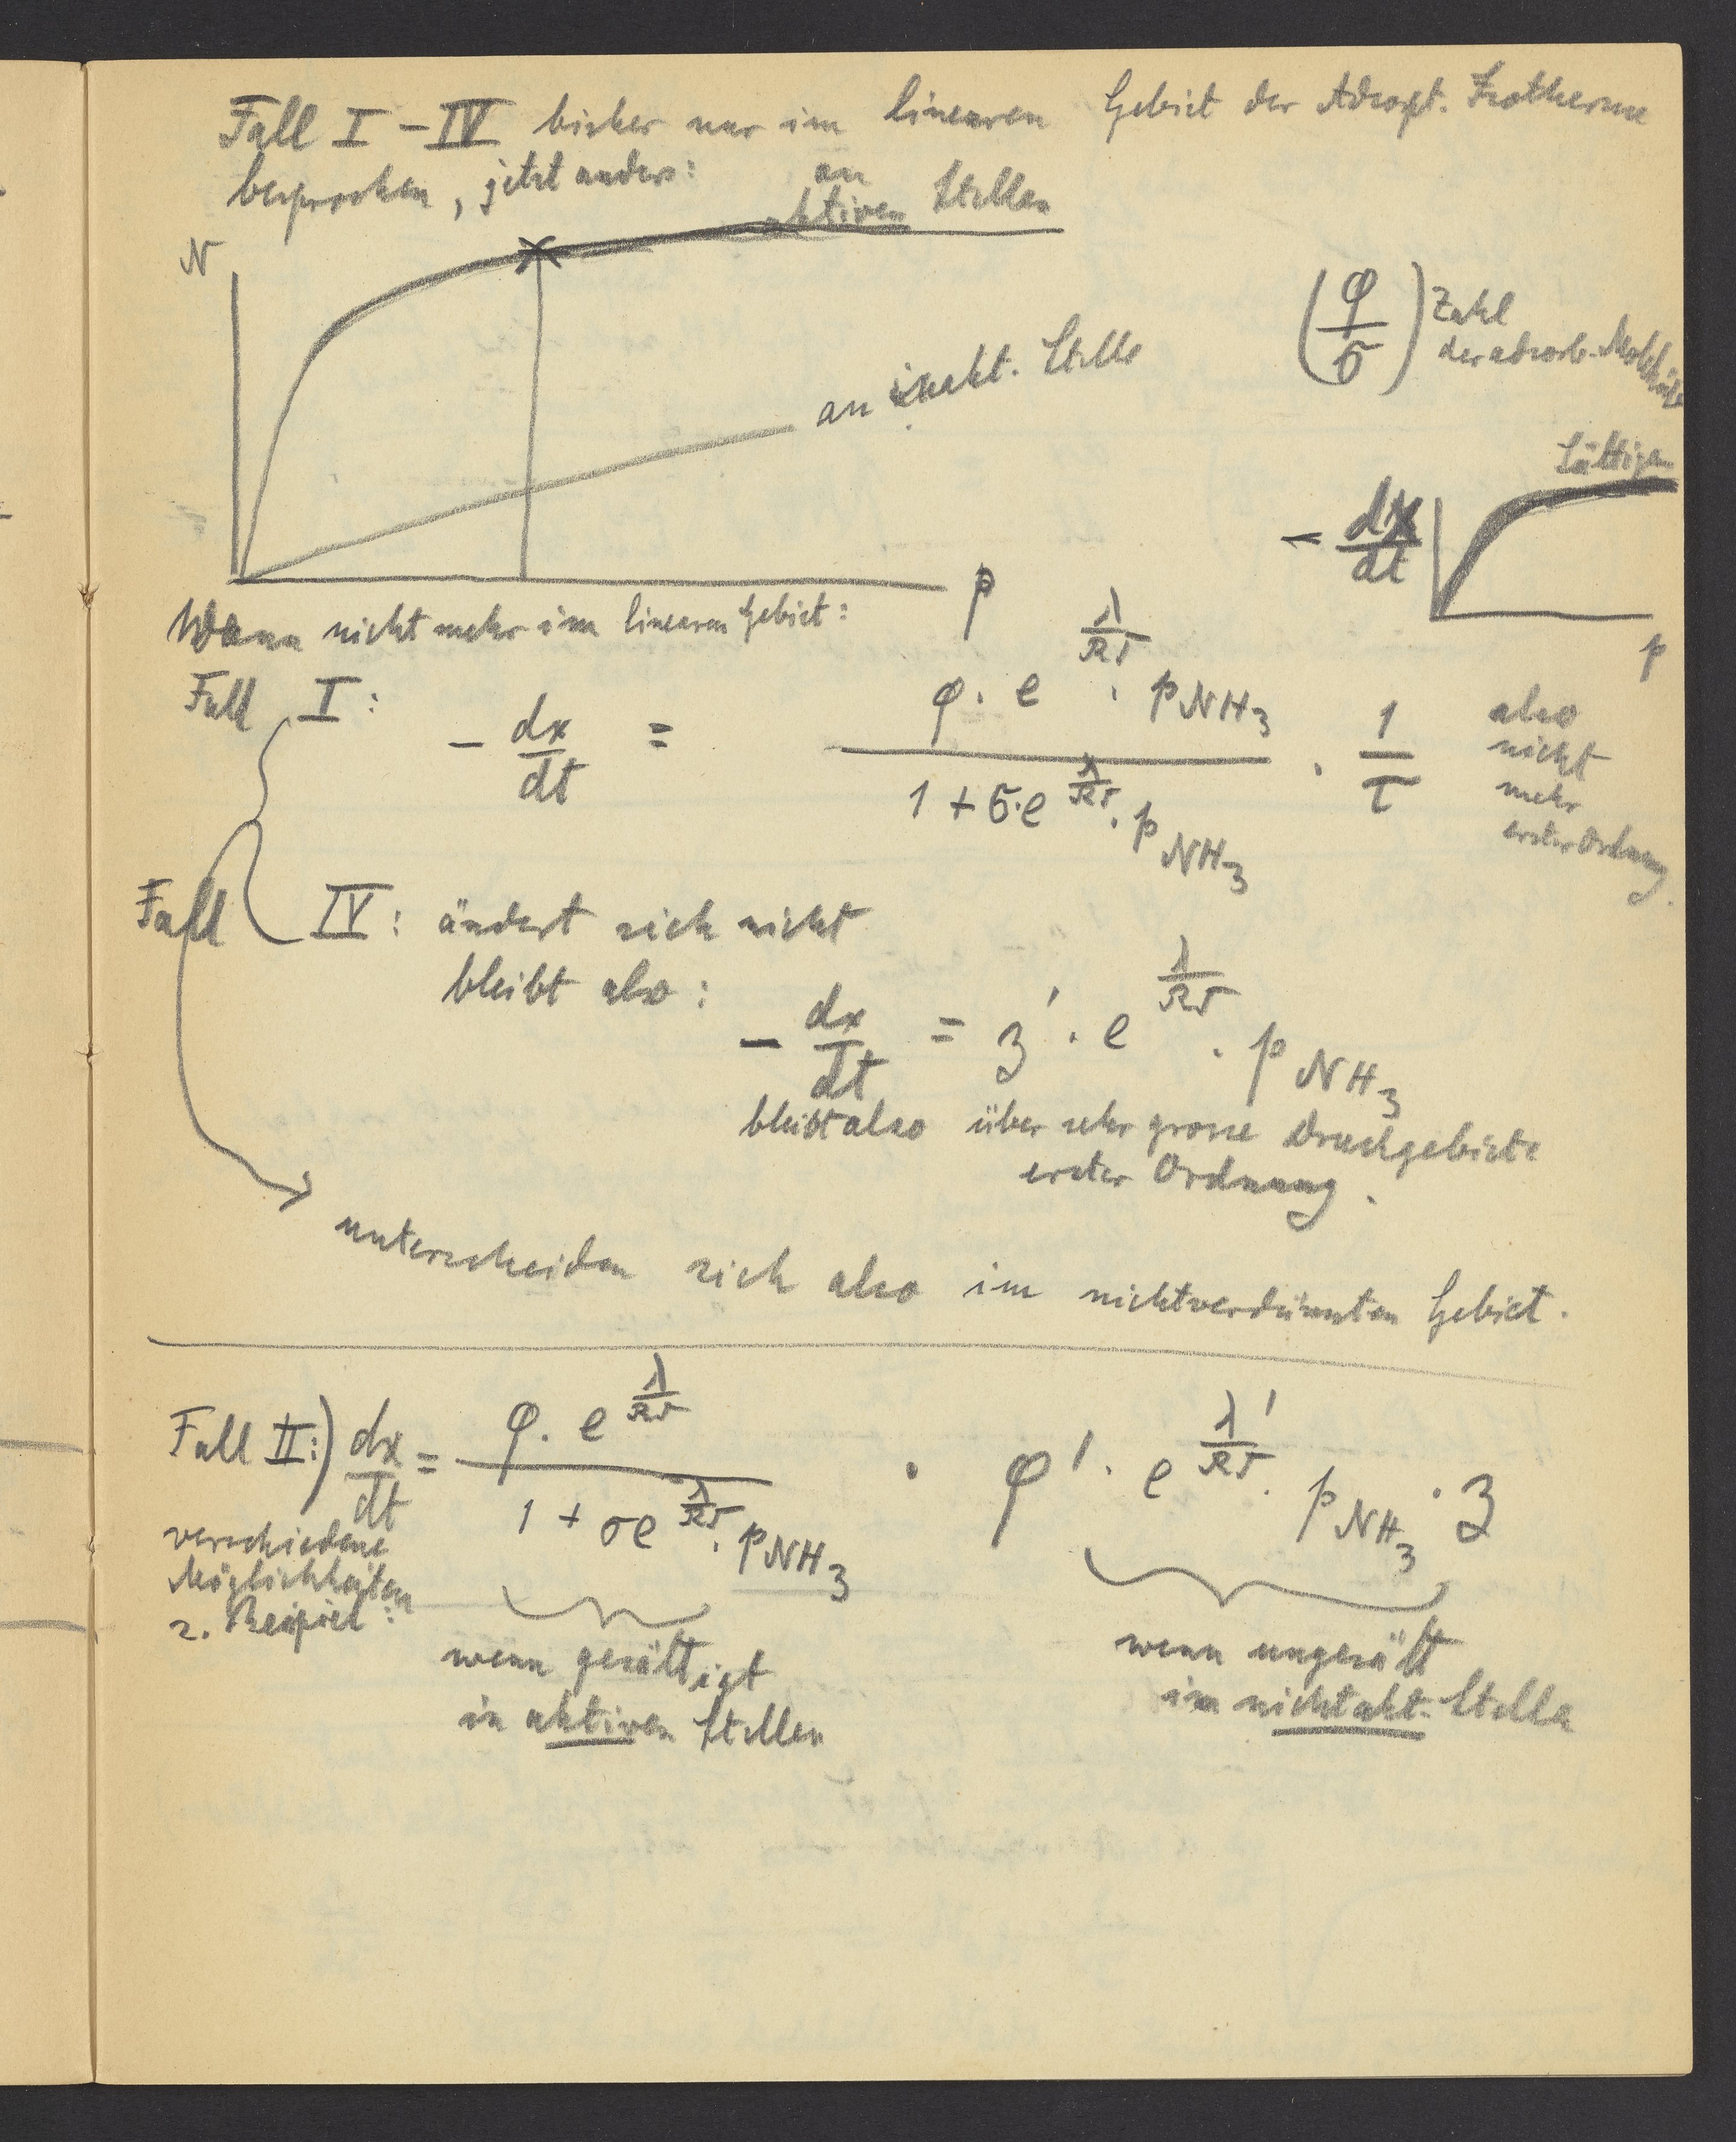 Fall I – IV bisher nur im linearen Gebiet der Adsorpt. Isotherme
besprochen, jetzt anders:
an
aktiven Stellen
N
an inakt. Stelle
p
(φ/σ) Zahl
der adsorb. Moleküle
Sättigen
- dx/dt
p
Wenn nicht mehr im linearen Gebiet:
Fall I: - dx/dt = (φ · e^(λ/RT) · p NH3) / (1 + σ · e^(λ/RT) · p NH3) · 1/τ
also
nicht
mehr
erster Ordnung.
Fall IV: ändert sich nicht
bleibt also:
- dx/dt = z' · e^(λ/RT) · p NH3
bleibt also über sehr grosse Druckgebiete
erster Ordnung.
unterscheiden sich also im nichtverdünnten Gebiet.
Fall II:) dx/dt = (φ · e^(λ/RT)) / (1 + σe^(λ/RT) · p NH3) · φ' · e^(λ'/RT) · p NH3 · z
verschiedene
Möglichkeiten
z. Beispiel:
wenn gesättigt
in aktiven Stellen
wenn ungesätt
im nichtakt. Stelle